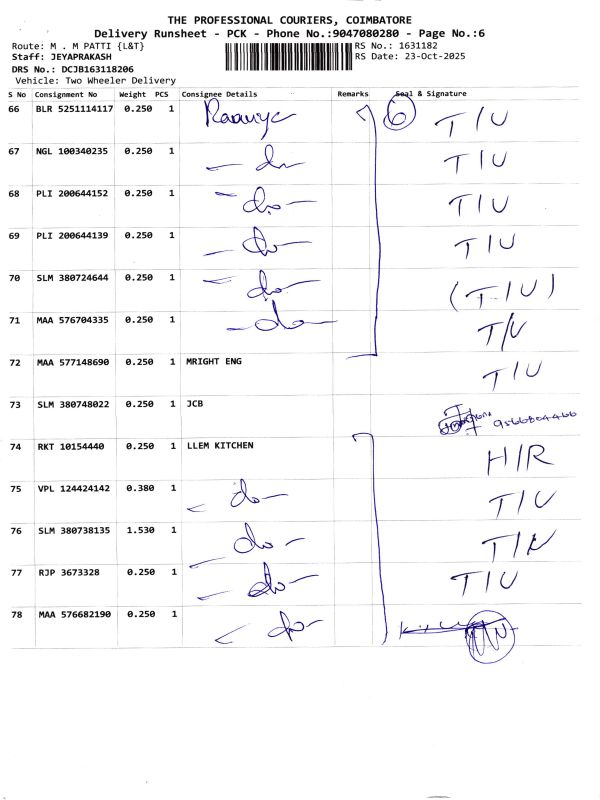 THE PROFESSIONAL COURIERS, COIMBATORE
Delivery Runsheet - PCK - Phone No.:9047080280 - Page No.:6
Route: M . M PATTI {L&T} RS No.: 1631182
Staff: JEYAPRAKASH RS Date: 23-Oct-2025
DRS No.: DCJB163118206
Vehicle: Two Wheeler Delivery
S No Consignment No Weight PCS Consignee Details Remarks Seal & Signature
66 BLR 5251114117 0.250 1 6 T/U
67 NGL 100340235 0.250 1 - do T/U
68 PLI 200644152 0.250 1 - do - T/U
69 PLI 200644139 0.250 1 - do - T/U
70 SLM 380724644 0.250 1 - do - (T/U)
71 MAA 576704335 0.250 1 - do - T/U
72 MAA 577148690 0.250 1 MRIGHT ENG T/U
73 SLM 380748022 0.250 1 JCB
74 RKT 10154440 0.250 1 LLEM KITCHEN H/R
75 VPL 124424142 0.380 1 - do - T/U
76 SLM 380738135 1.530 1 - do - T/U
77 RJP 3673328 0.250 1 - do - T/U
78 MAA 576682190 0.250 1 - do -